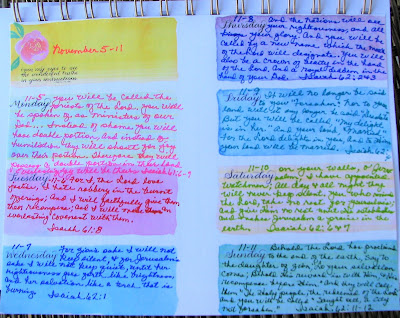 November 5-11
Open my eyes to see
the wonderful truths
in your instructions
11-5 You will be called the
Monday priests of the Lord, you will
be spoken of as ministers of our
God... Instead of shame you will
have double portion, and instead of
humiliation they will shout for joy
over their portion. Therefore they will
possess a double portion in their land
Everlasting joy will be theirs Isaiah 61:6-7
Tuesday 11-6 For I the Lord love
justice, I hate robbery in the burnt
offerings, and I will faithfully give them
their recompense and I will make them an
everlasting covenant with them.
Isaiah 61:8
11-7 For Zion's sake I will not
Wednesday keep silent, & for Jerusalem's
sake I will not keep quiet, until her
righteousness goes forth like brightness,
and her salvation like a torch that is
burning Isaiah 62:1
11-8 And the nations will see
Thursday your righteousness, and all
kings your glory. And you will be
called by a new name which the mouth
of the Lord will designate. You will
also be a crown of beauty in the hand
of the Lord, and a royal diadem in the
hand of your God. Isaiah 62:2&3
11-9 It will no longer be said
Friday to you "forsaken," nor to your
land will it any longer be said "desolate"
But you will be called, "my delight
is in her" and your land "married,"
For the Lord delights in you, and to Him
your land will be married. Isaiah 62:4
11-10 On your walls O Jerusalem
Saturday I have appointed
watchmen; All day & all night they
will never keep silent. You who remind
the Lord, take no rest for yourselves
and give Him no rest until He establishes
and makes Jerusalem a praise in the
earth. Isaiah 62:6&7
11-11 Behold the Lord has proclaimed
Sunday to the end of the earth, Say to
the daughter of Zion, "Lo your salvation
comes, Behold His reward is with Him, and His
recompense before Him." And they will call
them "the holy people, the redeemed of the Lord
and you will be called "Sought out, a city
not forsaken." Isaiah 62:11-12